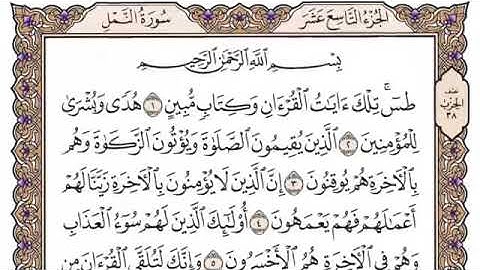 الجُزْءُ التَّاسِعَ عَشَرَ سُورَةُ النَّمْلِ
بِسْمِ ٱللَّهِ ٱلرَّحْمَٰنِ ٱلرَّحِيمِ
طسٓ ۚ تِلْكَ ءَايَٰتُ ٱلْقُرْءَانِ وَكِتَابٍ مُّبِينٍ ١ هُدًى وَبُشْرَىٰ
لِلْمُؤْمِنِينَ ٢ ٱلَّذِينَ يُقِيمُونَ ٱلصَّلَوٰةَ وَيُؤْتُونَ ٱلزَّكَوٰةَ وَهُم
بِٱلْءَاخِرَةِ هُمْ يُوقِنُونَ ٣ إِنَّ ٱلَّذِينَ لَا يُؤْمِنُونَ بِٱلْءَاخِرَةِ زَيَّنَّا لَهُمْ
أَعْمَٰلَهُمْ فَهُمْ يَعْمَهُونَ ٤ أُو۟لَٰٓئِكَ ٱلَّذِينَ لَهُمْ سُوٓءُ ٱلْعَذَابِ
وَهُمْ فِى ٱلْءَاخِرَةِ هُمُ ٱلْأَخْسَرُونَ ٥ وَإِنَّكَ لَتُلَقَّى ٱلْقُرْءَانَ مِن
نصف
الحِزْب
٣٨